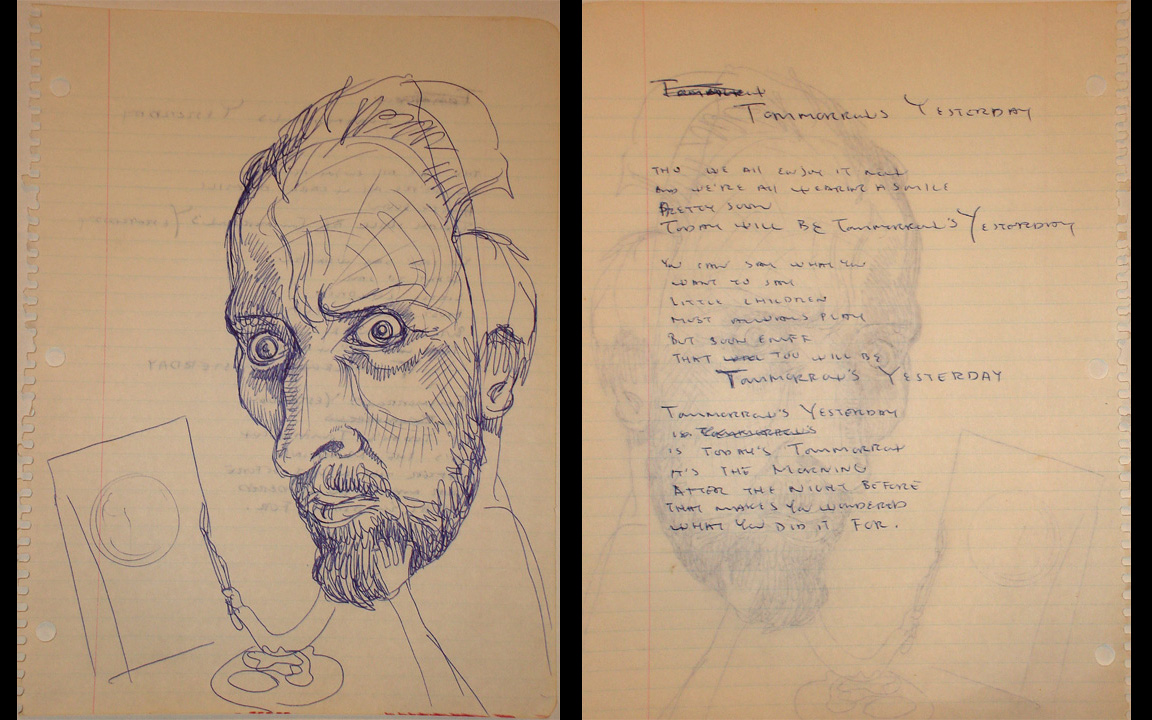 Tommorrow's
Tommorrow's Yesterday
THO WE All ENJOY IT NOW
AND WE'RE All WEARING A SMILE
PRETTY SOON
TODAY WILL BE Tommorrow's Yesterday
YOU CAN SAY WHAT YOU
WANT TO SAY
LITTLE CHILDREN
MUST ALWAYS PLAY
BUT SOON ENUFF
THAT WILL TOO WILL BE
Tommorrow's Yesterday
Tommorrow's Yesterday
is Tommorrow's
is TODAY'S Tommorrow
it's THE MORNING
AFTER THE NIGHT BEFORE
THAT MAKES YOU WONDERED
WHAT YOU DID IT FOR.